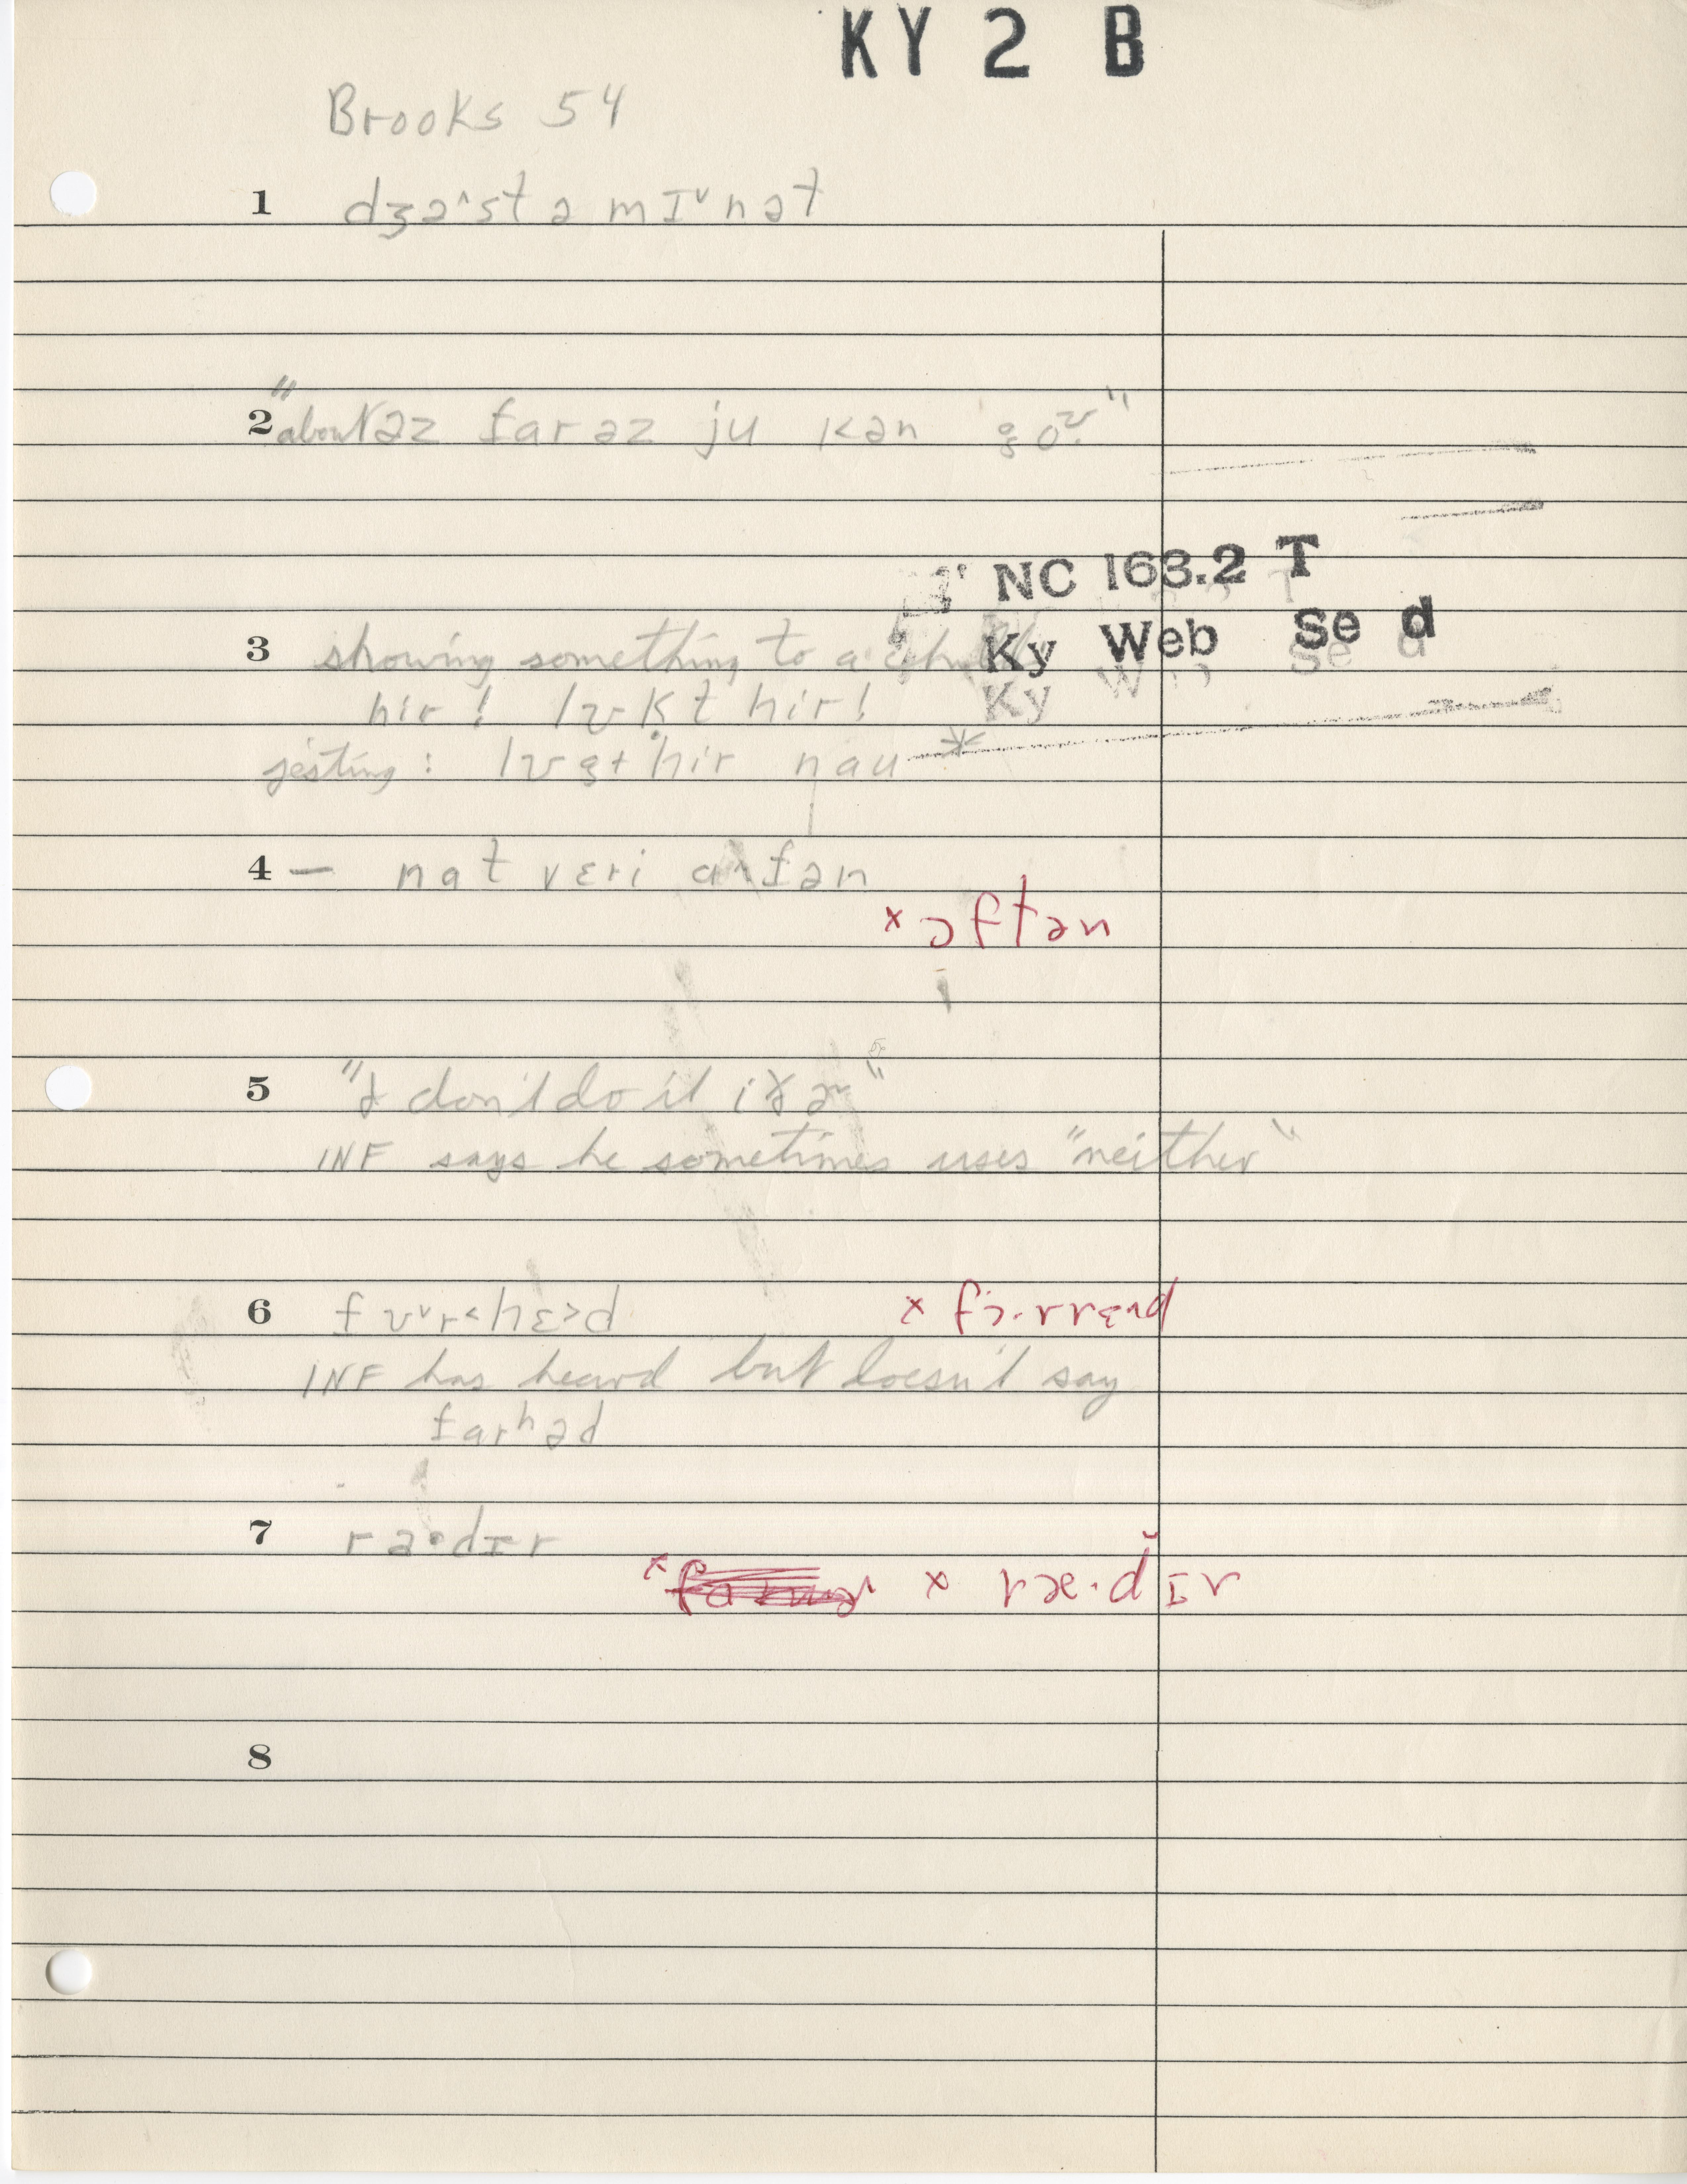 KY 2 B
Brooks 54
1 dʒə^st ə mɪᵛnət
2 "about əz far əz ju kən goʊ"
NC 163.2 T
Ky Web Se d
3 showing something to a
hir! lʊk̬t hir!
jesting: lʊgt hir nau *
4 — nat vɛri afən
× ɔftən
5 "I don't do it iðɚ"
INF says he sometimes uses "neither"
6 fʊᵛr<hɛ>d × fɔ·rrɛ^d
INF has heard but doesn't say
farʰəd
7 ra·dɪr
× × ræ·d̆ɪr
8